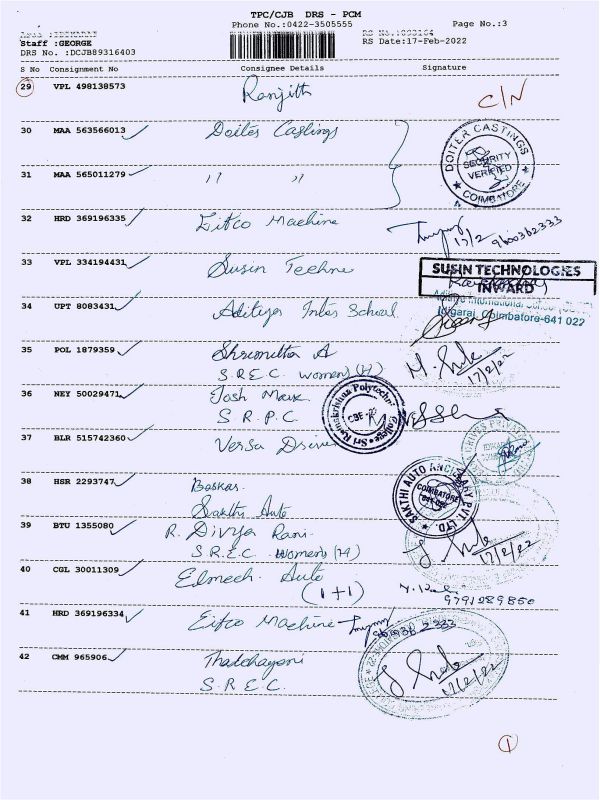 TPC/CJB DRS - PCM
Phone No.:0422-3505555
Page No.:3
Staff :GEORGE
DRS No. :DCJB89316403
RS Date:17-Feb-2022
S No Consignment No Consignee Details Signature
29 VPL 498138573 Ranjith C/N
30 MAA 563566013 Doiter Castings
DOITER CASTINGS
SECURITY
VERIFIED
COIMBATORE
31 MAA 565011279 " "
32 HRD 369196335 Eitco Machine 17/2 9600362333
33 VPL 334194431 Susin Techno
SUSIN TECHNOLOGIES
INWARD
34 UPT 8083431 Aditya Inter School
Aditya International School
Idigarai, Coimbatore-641 022
35 POL 1879359 Shrimitha A
S.R.E.C. Women's (H) 17/2/22
36 NEY 50029471 Josh
S.R.P.C.
Sri Ramakrishna Polytechnic College
CBE
37 BLR 515742360 Versa Drives
38 HSR 2293747 Baskar
Sakthi Auto
SAKTHI AUTO ANCILLARY PVT. LTD.
COIMBATORE
39 BTU 1355080 R. Divya Rani
S.R.E.C. Women's (H) 17/2/22
40 CGL 30011309 Elmech Auto
(1+1) 9791289850
41 HRD 369196334 Eitco Machine
42 CMM 965906 Thatchayani
S.R.E.C. 17/2/22
1